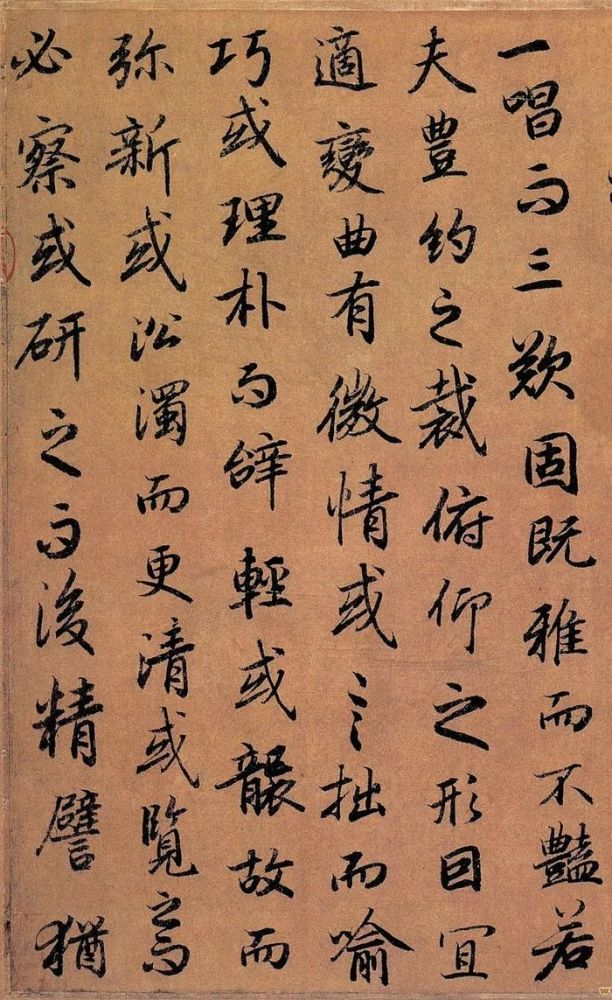 一唱而三歎固既雅而不豔若
夫豊約之裁俯仰之形因宜
適變曲有微情或言拙而喻
巧或理朴而辞輕或襲故而
弥新或沿濁而更清或覧之而
必察或研之而後精譬猶